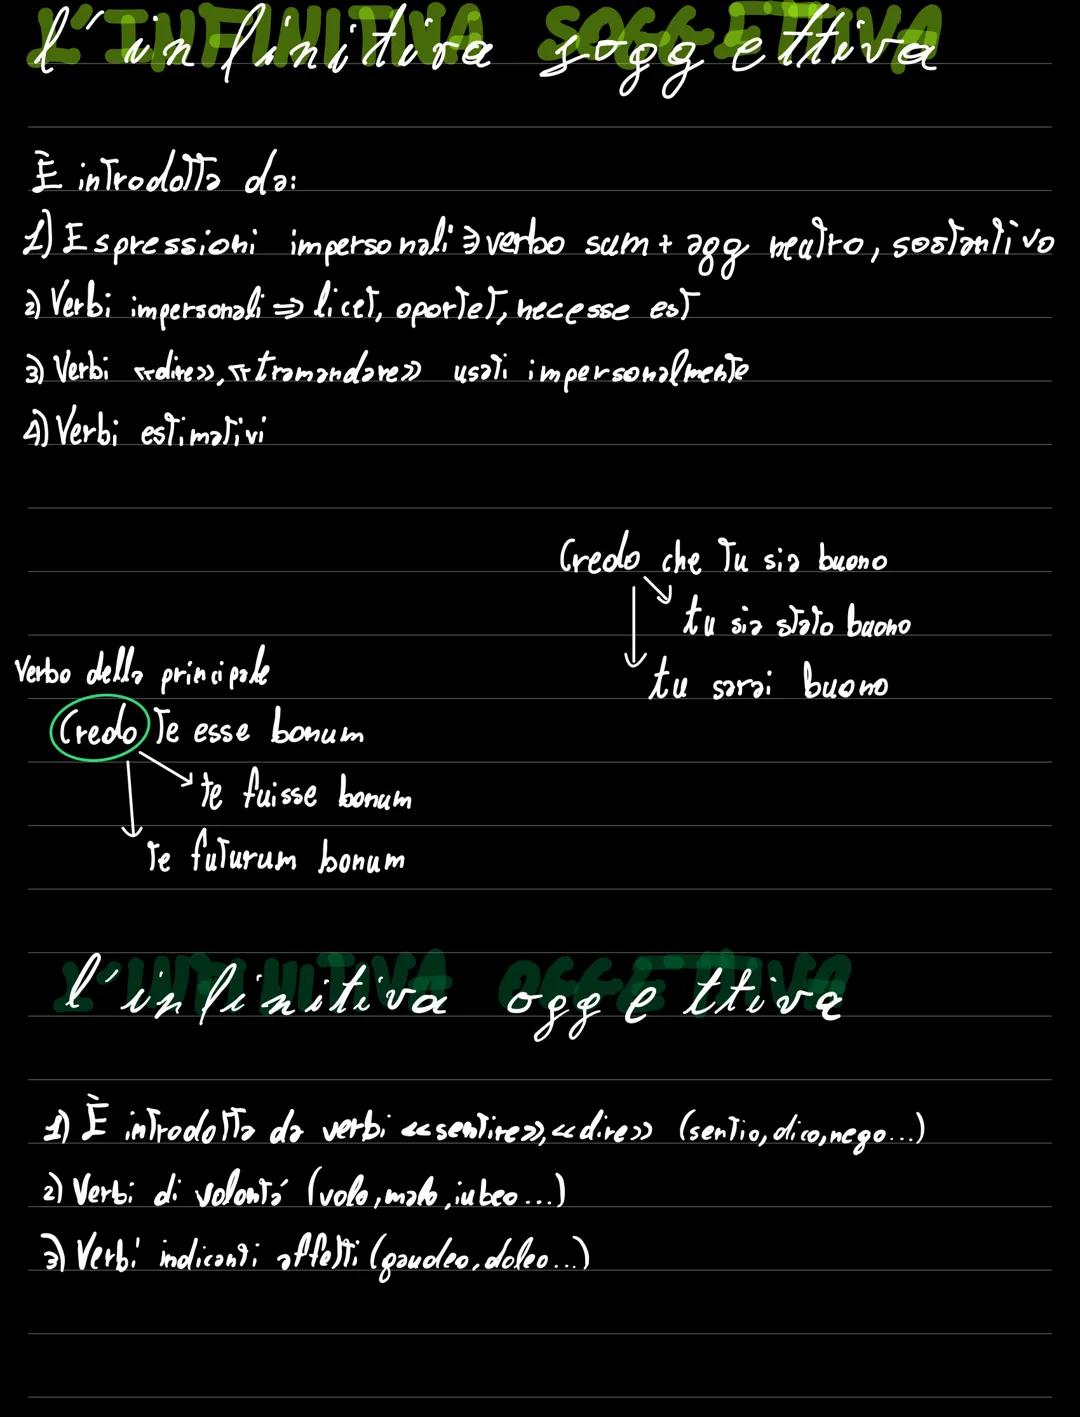 L'INFINITIVA SOGGETTIVA
l'infinitiva soggettiva
È introdotta da:
1) Espressioni impersonali ⇒ verbo sum + agg neutro, sostantivo
2) Verbi impersonali ⇒ licet, oportet, necesse est
3) Verbi <<dire>>, <<tramandare>> usati impersonalmente
4) Verbi estimativi
Credo che tu sia buono
tu sia stato buono
tu sarai buono
Verbo della principale
Credo te esse bonum
te fuisse bonum
te futurum bonum
L'INFINITIVA OGGETTIVA
l'infinitiva oggettiva
1) È introdotta da verbi <<sentire>>, <<dire>> (sentio, dico, nego...)
2) Verbi di volontá (volo, malo, iubeo...)
3) Verbi indicanti affetti (gaudeo, doleo...)